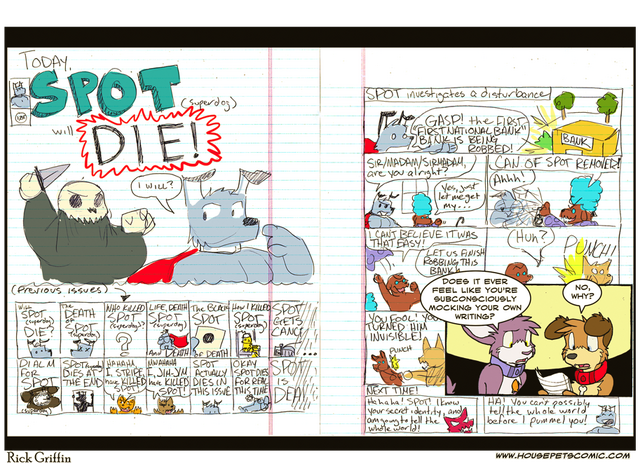 TODAY,
SPOT
(superdog)
will
DIE!
I WILL?
(Previous issues)
Will
SPOT
(superdog)
DIE?
The
DEATH
of
SPOT
(superdog)
WHO KILLED
SPOT
(superdog)?
?
LIFE, DEATH
SPOT
(superdog)
And DEATH
The BLACK
SPOT
of DEATH
How I KILLED
SPOT
(superdog)
SPOT
GETS
CANCE
DIAL M
FOR
SPOT
SPOT
DIES AT
THE END
HAHAHA
I, STRIPE,
have KILLED
SPOT!
HAHAHA
have KILLED
SPOT!
SPOT
ACTUALLY
DIES IN
THIS ISSUE
OKAY
SPOT DIES
FOR REAL
THIS TIME
SPOT
IS
DEAD
SPOT investigates a disturbance
GASP! the FIRST
"FIRST NATIONAL BANK"
BANK IS BEING
ROBBED!
BANK
SIR/MADAM/SIRMADAM,
are you alright?
Yes, just
let me get
my...
CAN OF SPOT REMOVER!
Ahhh!
I CAN'T BELIEVE IT WAS
THAT EASY!
LET US FINISH
ROBBING THIS
BANK!
Huh?
PUNCH!
YOU FOOL! YOU
TURNED HIM
INVISIBLE!
PUNCH
DOES IT EVER
FEEL LIKE YOU'RE
SUBCONSCIOUSLY
MOCKING YOUR OWN
WRITING?
NO,
WHY?
NEXT TIME!
He ha ha! SPOT! I know
your secret identity, and
am going to tell the
whole world!
HA! You can't possibly
tell the whole world
before I pummel you!
Rick Griffin
WWW.HOUSEPETSCOMIC.COM